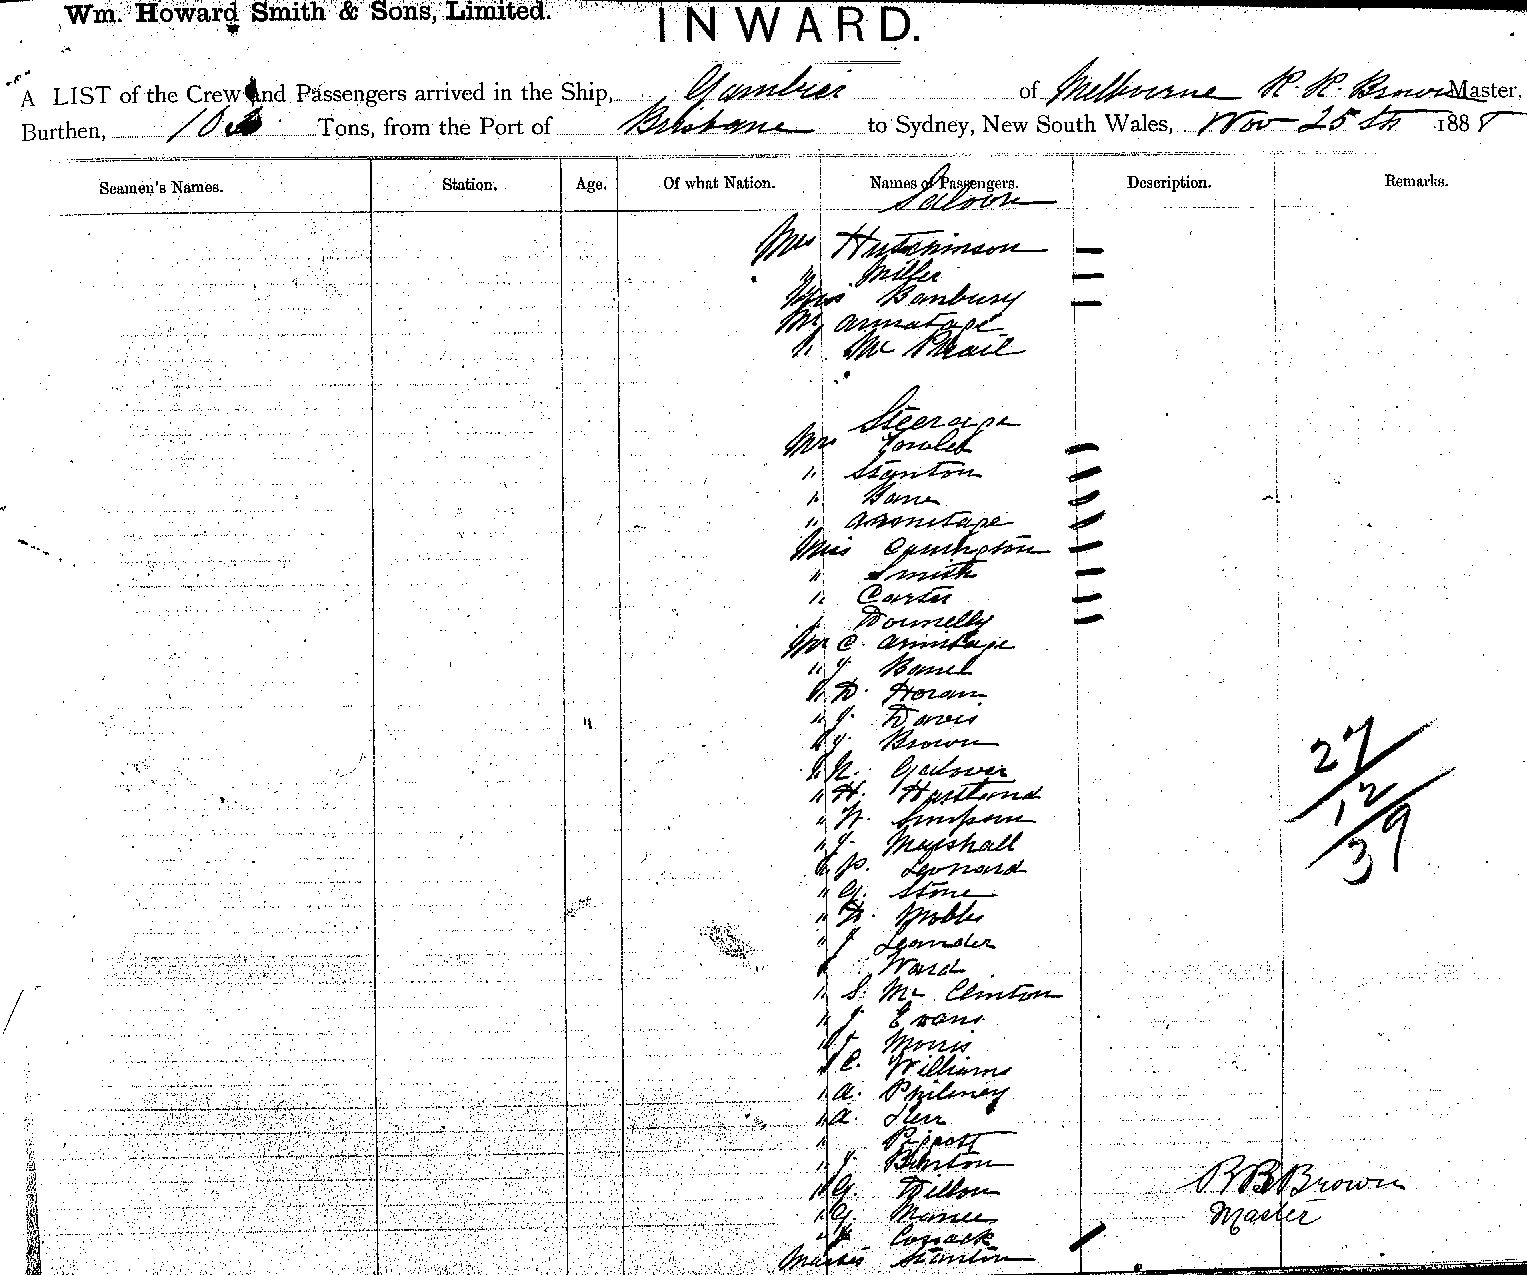 Wm. Howard Smith & Sons, Limited.
INWARD.
A LIST of the Crew and Passengers arrived in the Ship, Gambier of Melbourne R. R. Brown Master,
Burthen, Tons, from the Port of Brisbane to Sydney, New South Wales, Nov 25th 1888
Seamen's Names. Station. Age. Of what Nation. Names of Passengers. Description. Remarks.
Saloon
Mrs Hutchinson —
" Miller —
Miss Banbury —
Mr Armatage
" Mc Phail
Steerage
Mrs Fowler —
" Stanton —
" Bane —
" Armitage —
Miss Carrington —
" Smith —
" Carter —
" Donnelly —
Mr C. Armitage
" J. Barrel
" D. Horan
" J. Davis
" J. Brown
" H. Hartland
" W. Simpson
" J. Marshall
" P. Leonard
" G. Stone
" Mobbs
" J Leander
" Ward
" S. Mc Clinton
" J Evans
" Morris
" C. Williams
" A. Philmey
" A.
" Pigott
" J. Binton
" G. Dillon
" G. Mance
" Cossack
Master Stanton
27
12
39
R B Brown
Master